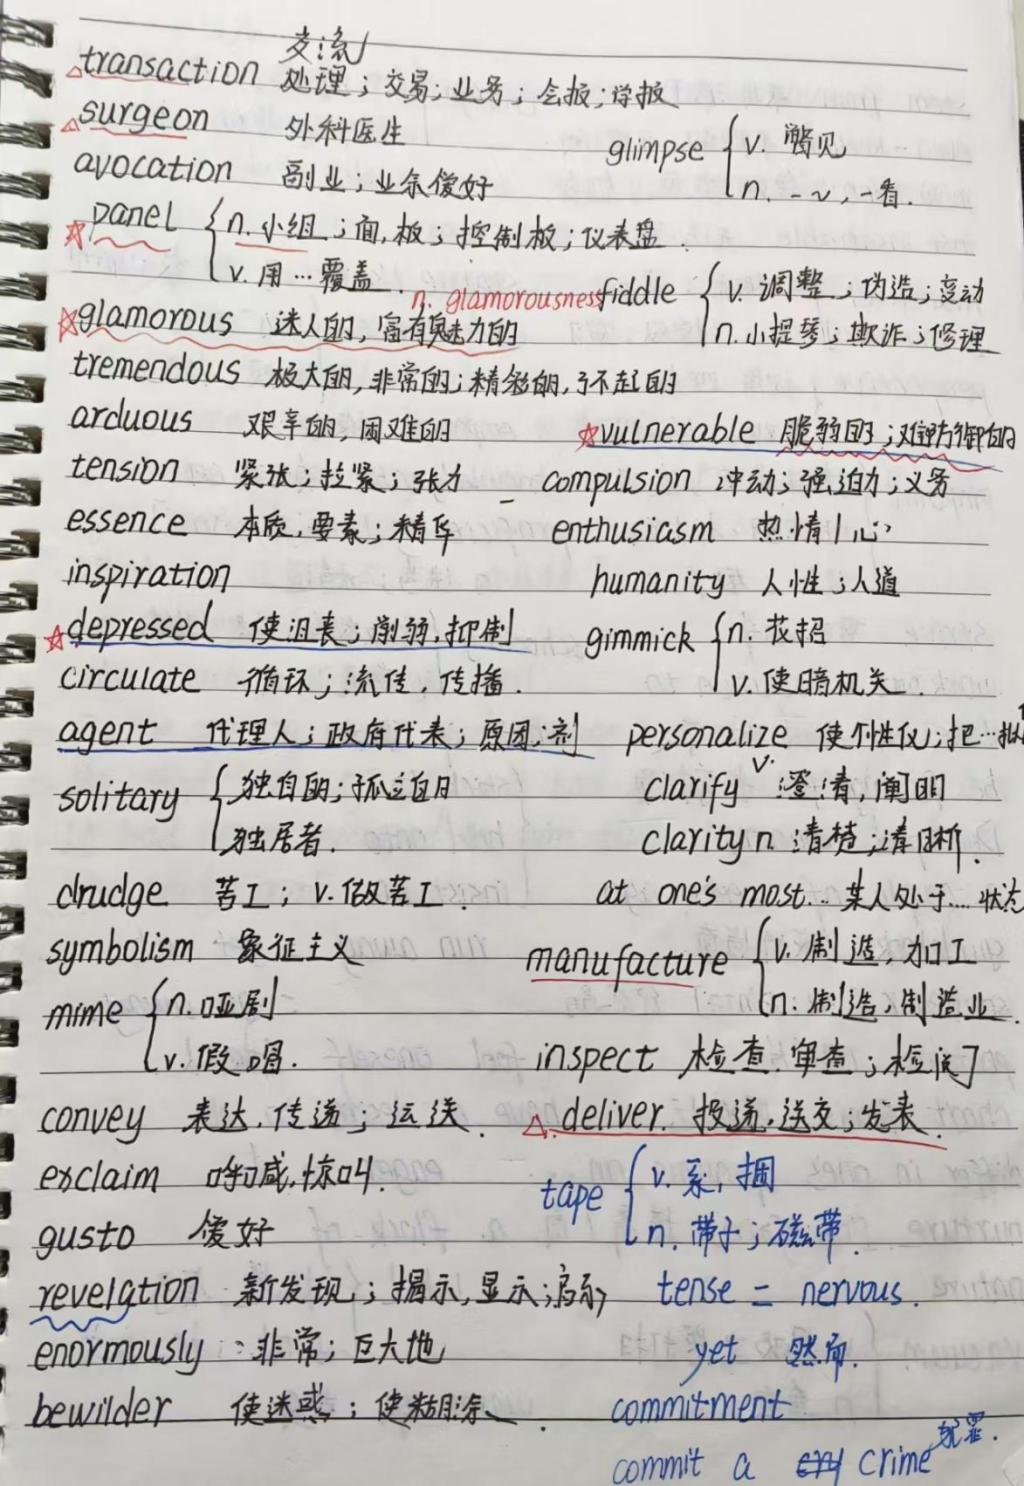 交流
transaction 处理；交易；业务；会报；学报
surgeon 外科医生
glimpse { v. 瞥见
n. 一~，一看.
avocation 副业；业余爱好
panel { n. 小组；面板；控制板；仪表盘.
v. 用…覆盖.
n. glamorousness
fiddle { v. 调整；伪造；变动
n. 小提琴；欺诈；修理
glamorous 迷人的，富有魅力的
tremendous 极大的，非常的；精彩的，了不起的
arduous 艰辛的，困难的
vulnerable 脆弱的；难防御的
tension 紧张；拉紧；张力
compulsion 冲动；强迫力；义务
essence 本质，要素；精华
enthusiasm 热情/心
inspiration
humanity 人性；人道
depressed 使沮丧；削弱，抑制
gimmick { n. 花招
v. 使暗机关.
circulate 循环；流传，传播.
agent 代理人；政府代表；原因；剂
personalize 使个性化；把…拟
solitary { 独自的；孤立的
独居者.
clarify v. 澄清，阐明
clarity n 清楚；清晰.
drudge 苦工；v. 做苦工.
at one's most... 某人处于....状态
symbolism 象征主义
manufacture { v. 制造，加工
n. 制造，制造业.
mime { n. 哑剧
v. 假唱.
inspect 检查，审查；检阅
convey 表达，传递；运送.
deliver. 投递，送交；发表.
exclaim 呼喊，惊叫.
tape { v. 系，捆
n. 带子；磁带.
gusto 爱好
revelation 新发现；揭示，显示；启示
tense = nervous.
enormously : 非常；巨大地
yet 然而.
bewilder 使迷惑；使糊涂.
commitment
commit a crime 犯罪.